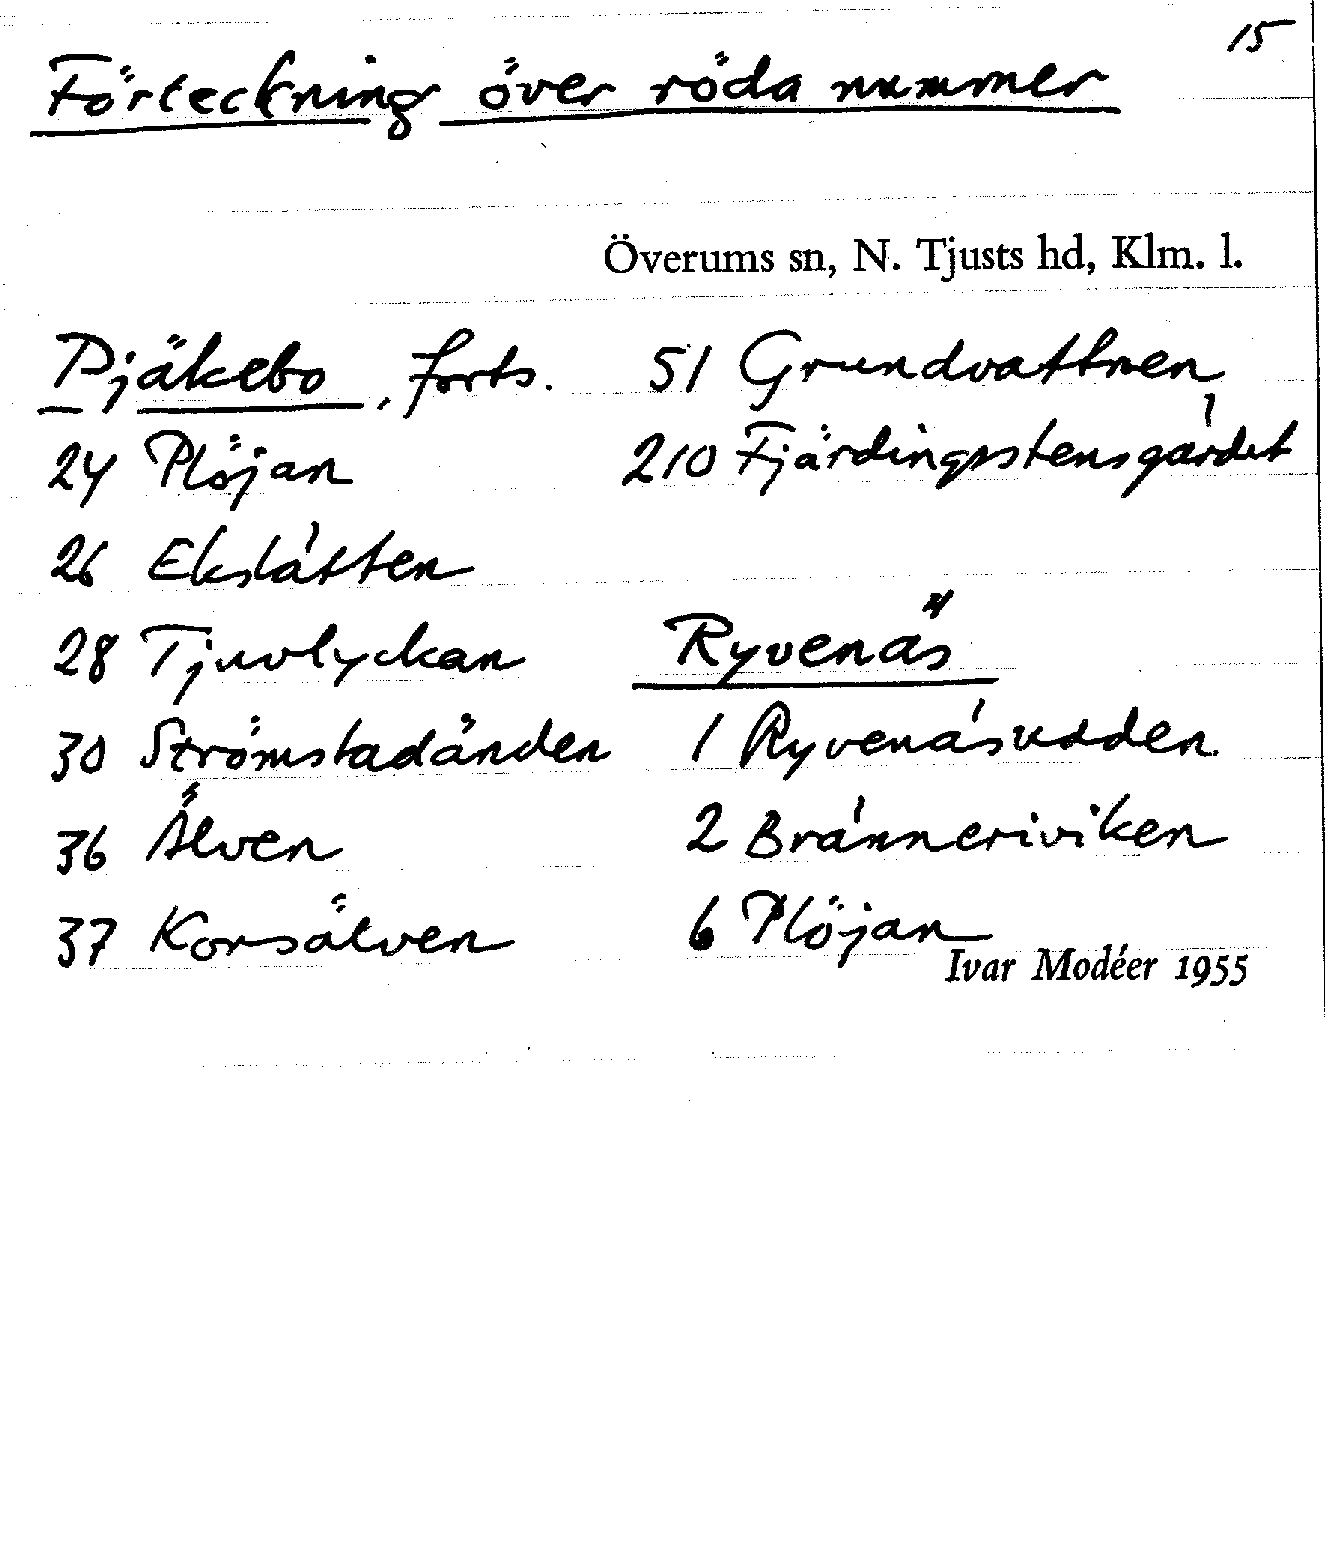 15
Förteckning över röda nummer
Överums sn, N. Tjusts hd, Klm. l.
Pjäkebo, forts.
24 Plöjan
26 Ekslätten
28 Tjuvlyckan
30 Strömstadänden
36 Älven
37 Korsälven
51 Grundvattnen
210 Fjärdingsstensgärdet
Ryvenäs
1 Ryvenäsudden
2 Bränneriviken
6 Plöjan
Ivar Modéer 1955